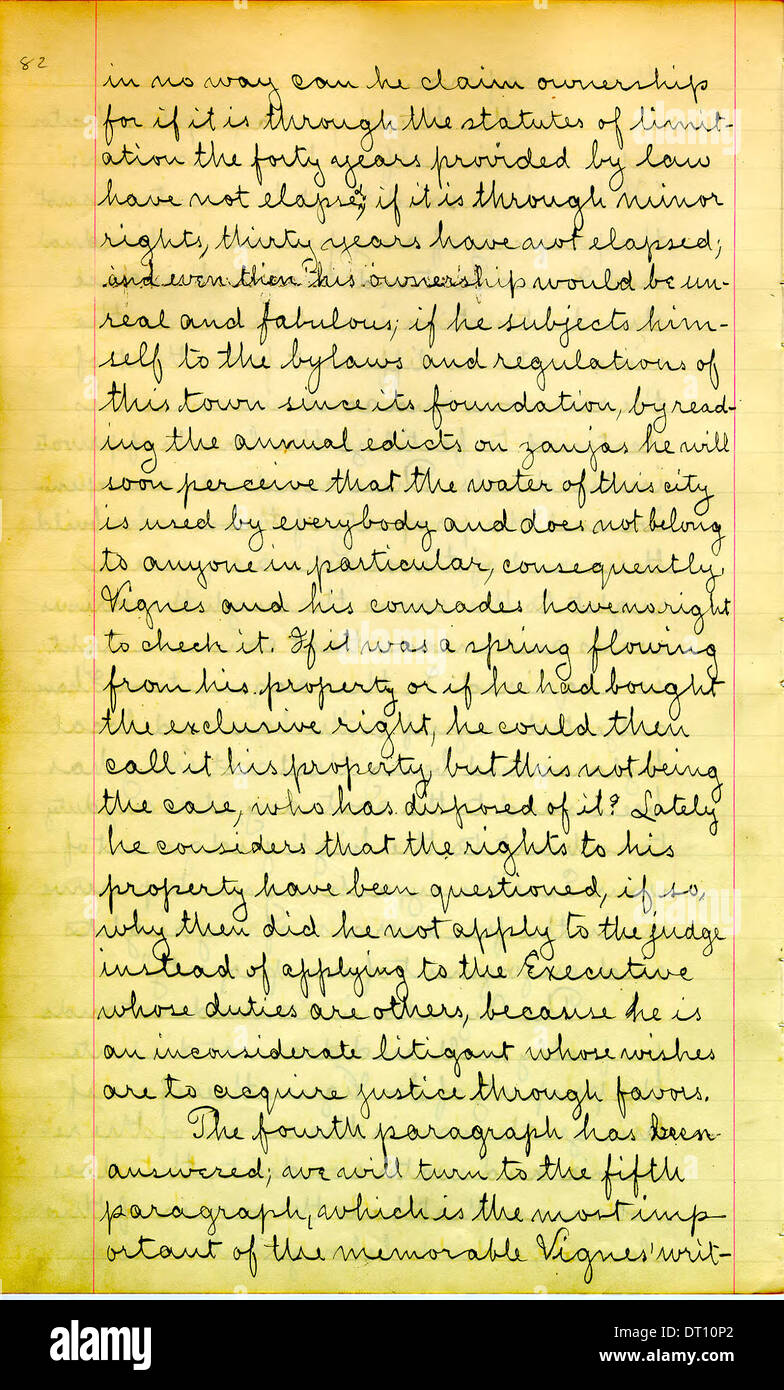 82
in no way can he claim ownership
for if it is through the statutes of limit-
ation the forty years provided by law
have not elapsed; if it is through minor
rights, thirty years have not elapsed;
and even then his ownership would be un-
real and fabulous; if he subjects him-
self to the bylaws and regulations of
this town since its foundation, by read-
ing the annual edicts on zanjas he will
soon perceive that the water of this city
is used by everybody and does not belong
to anyone in particular, consequently,
Vignes and his comrades have no right
to check it. If it was a spring flowing
from his property or if he had bought
the exclusive right, he could then
call it his property, but this not being
the case, who has disposed of it? Lately
he considers that the rights to his
property have been questioned, if so,
why then did he not apply to the judge
instead of applying to the Executive
whose duties are others, because he is
an inconsiderate litigant whose wishes
are to acquire justice through favors.
The fourth paragraph has been
answered; we will turn to the fifth
paragraph, which is the most imp
ortant of the memorable Vignes' writ-
alamy
Image ID: DT10P2
www.alamy.com